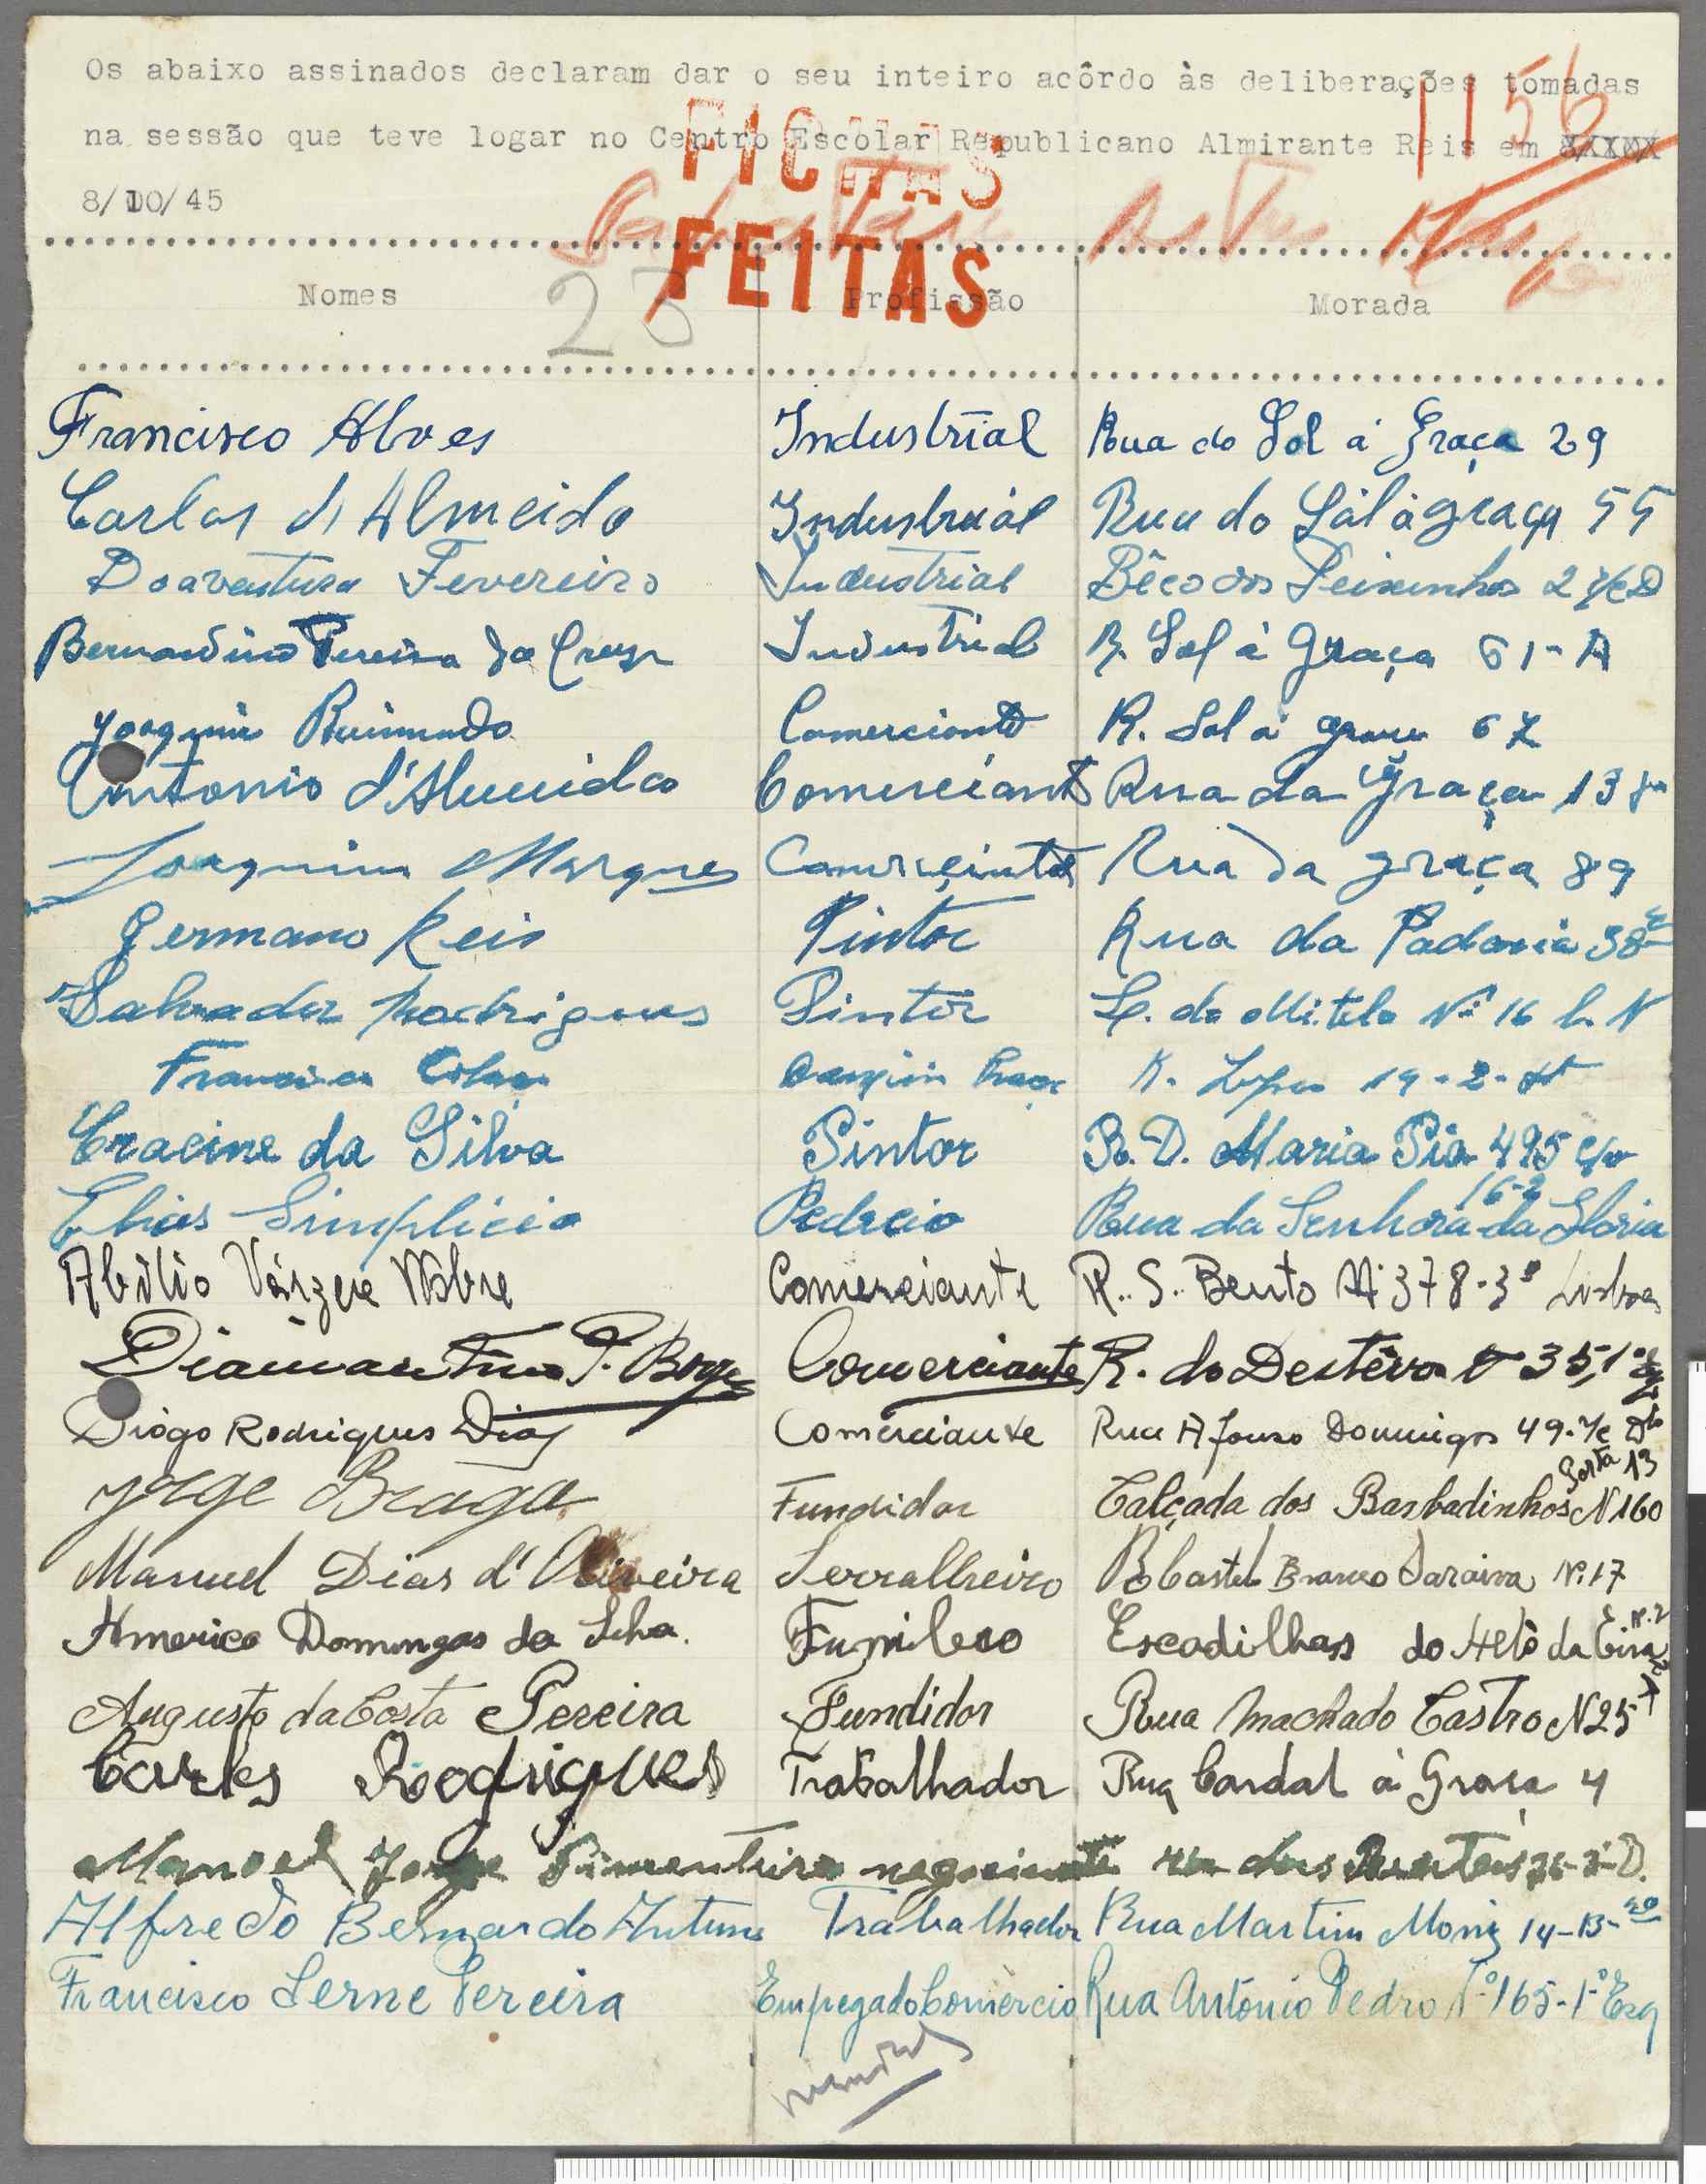 Os abaixo assinados declaram dar o seu inteiro acôrdo às deliberações tomadas
na sessão que teve logar no Centro Escolar Republicano Almirante Reis em
8/10/45
1156
FICHAS
FEITAS
23
Nomes Profissão Morada
Francisco Alves Industrial Rua do Sol á Graça 29
Carlos d'Almeida Industrial Rua do Sol á graça 55
Boaventura Fevereiro Industrial Bêco dos Peixinhos 2 r/c D
Bernardino Pereira da Cruz Industrial R. Sol á Graça 61-A
Joaquim Raimundo Comerciante R. Sol á graça 67
Antonio d'Almeida Comerciante Rua da Graça 13
Joaquim Marques Comerciante Rua da graça 89
Germano Reis Pintor Rua da Padaria 38
Salvador Rodrigues Pintor 16
Francisco 19-2-
Eracine da Silva Pintor R. D. Maria Pia 495
Elias Simplicio Pedreio Rua da Senhora da Gloria 16-2
Abilio Várzea Nobre Comerciante R. S. Bento Nº 378-3º Lisboa
Diamantino P. Borges Comerciante R. do Destêrro 35,1º
Diogo Rodrigues Dias Comerciante Rua Afonso Domingos 49-r/c Dto
Jorge Braga Fundidor Calçada dos Barbadinhos N 160 Porta 13
Manuel Dias d'Oliveira Serralheiro R Castelo Branco Saraiva Nº 17
Americo Domingos da Silva. Funileiro Escadilhas do Alto da Eira Nº 2
Augusto da Costa Pereira Fundidor Rua Machado Castro N 25
Carlos Rodrigues Trabalhador Rua Cardal á Graça 4
Manoel Jorge Pimenteira negociante dos
Alfredo Bernardo Antunes Trabalhador Rua Martim Moniz 14-B-
Francisco Serne Pereira Empregado Comércio Rua António Pedro Nº 165-1º Esq